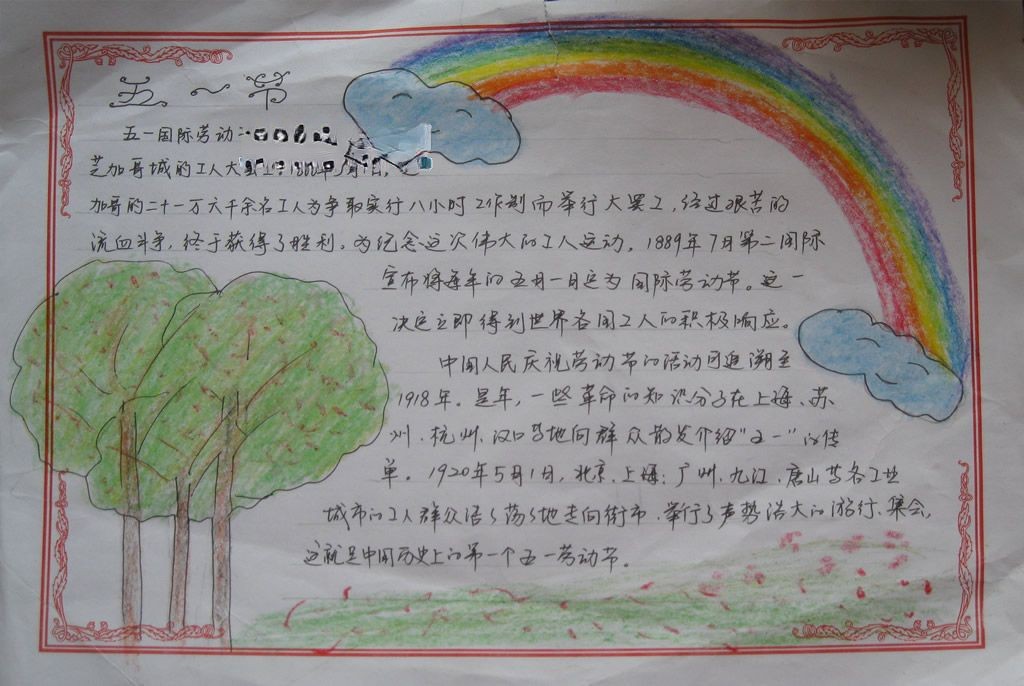 五一节
五一国际劳动
芝加哥城的工人大
加哥的二十一万六千余名工人为争取实行八小时工作制而举行大罢工,经过艰苦的
流血斗争,终于获得了胜利。为纪念这次伟大的工人运动,1889年7月第二国际
宣布将每年的五月一日定为国际劳动节。这一
决定立即得到世界各国工人的积极响应。
中国人民庆祝劳动节的活动可追溯至
1918年。是年,一些革命的知识分子在上海、苏
州、杭州、汉口等地向群众散发介绍"五一"的传
单。1920年5月1日,北京、上海、广州、九江、唐山等各工业
城市的工人群众浩浩荡荡地走向街市、举行了声势浩大的游行、集会,
这就是中国历史上的第一个五一劳动节。